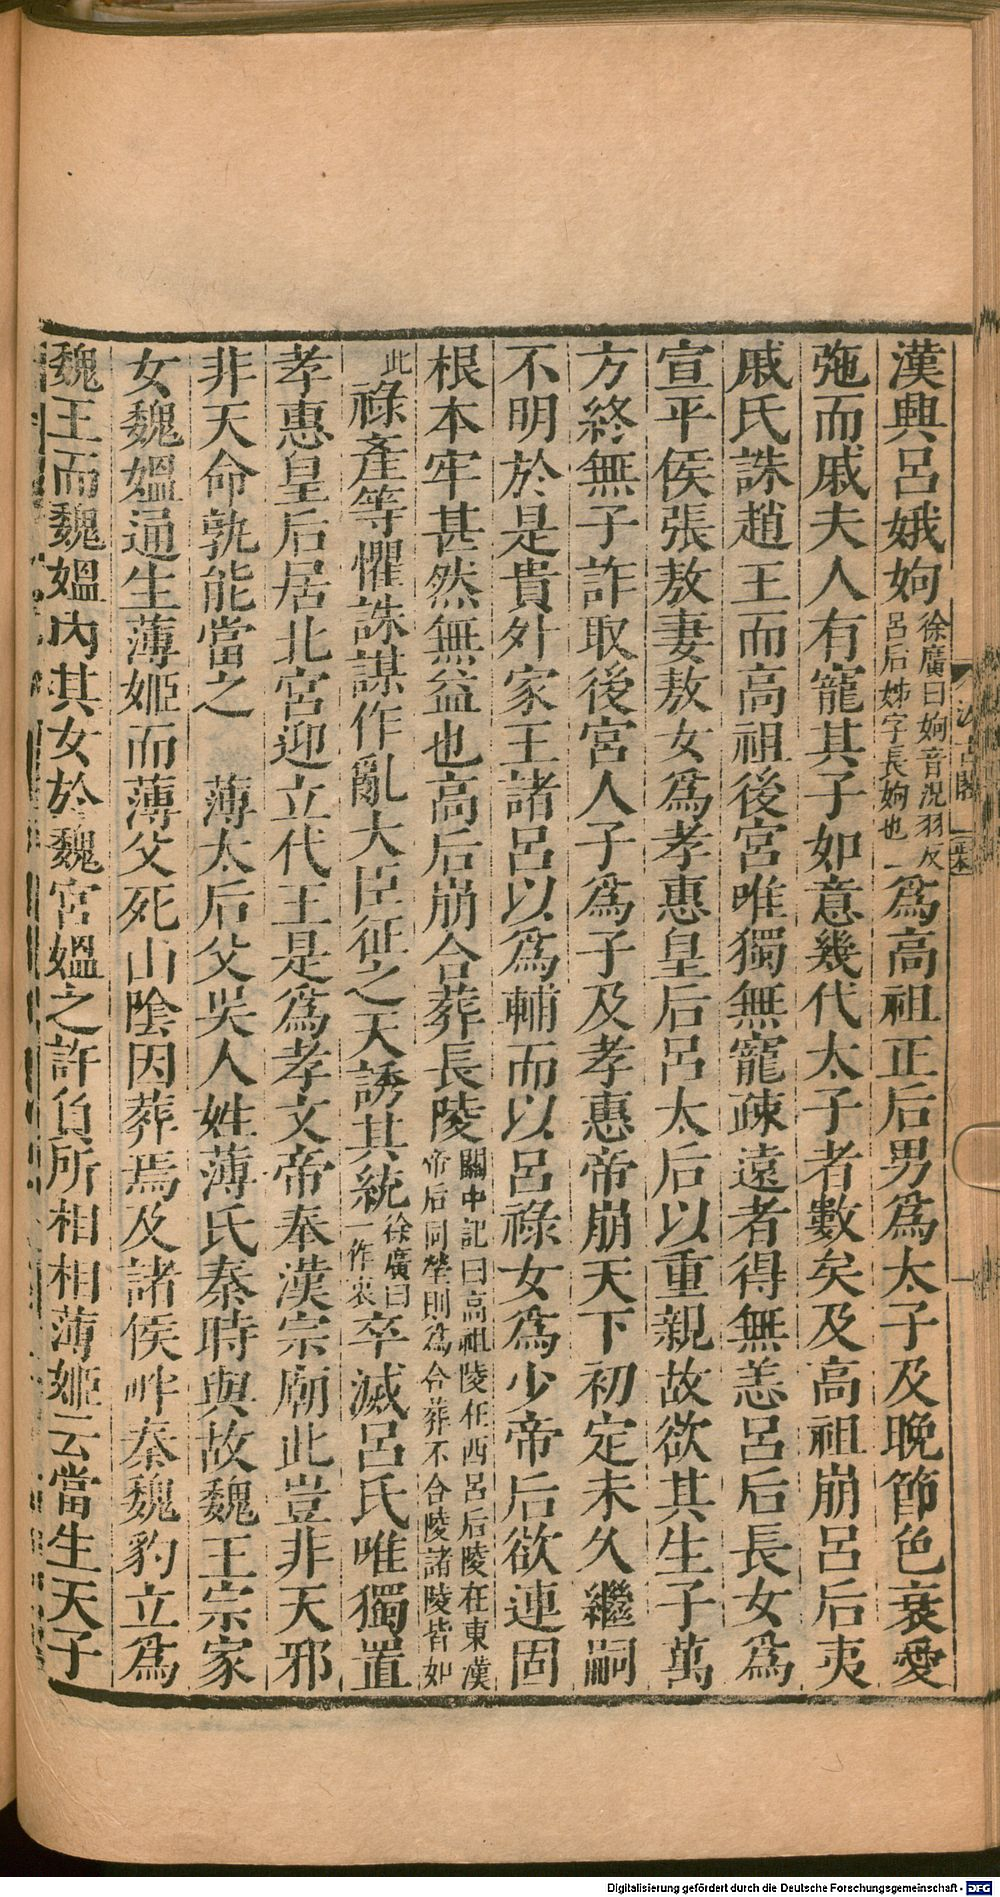 漢興呂娥姁徐廣曰姁音況羽反呂后姊字長姁也為高祖正后男為太子及晚節色衰愛
弛而戚夫人有寵其子如意幾代太子者數矣及高祖崩呂后夷
戚氏誅趙王而高祖後宮唯獨無寵疎遠者得無恙呂后長女為
宣平侯張敖妻敖女為孝惠皇后呂太后以重親故欲其生子萬
方終無子詐取後宮人子為子及孝惠帝崩天下初定未久繼嗣
不明於是貴外家王諸呂以為輔而以呂祿女為少帝后欲連固
根本牢甚然無益也高后崩合葬長陵關中記曰高祖陵在西呂后陵在東漢帝后同塋則為合葬不合陵諸陵皆如
此祿產等懼誅謀作亂大臣征之天誘其統徐廣曰一作衷卒滅呂氏唯獨置
孝惠皇后居北宮迎立代王是為孝文帝奉漢宗廟此豈非天邪
非天命孰能當之 薄太后父吳人姓薄氏秦時與故魏王宗家
女魏媼通生薄姬而薄父死山陰因葬焉及諸侯畔秦魏豹立為
魏王而魏媼內其女於魏宮媼之許負所相相薄姬云當生天子
Digitalisierung gefördert durch die Deutsche Forschungsgemeinschaft - DFG